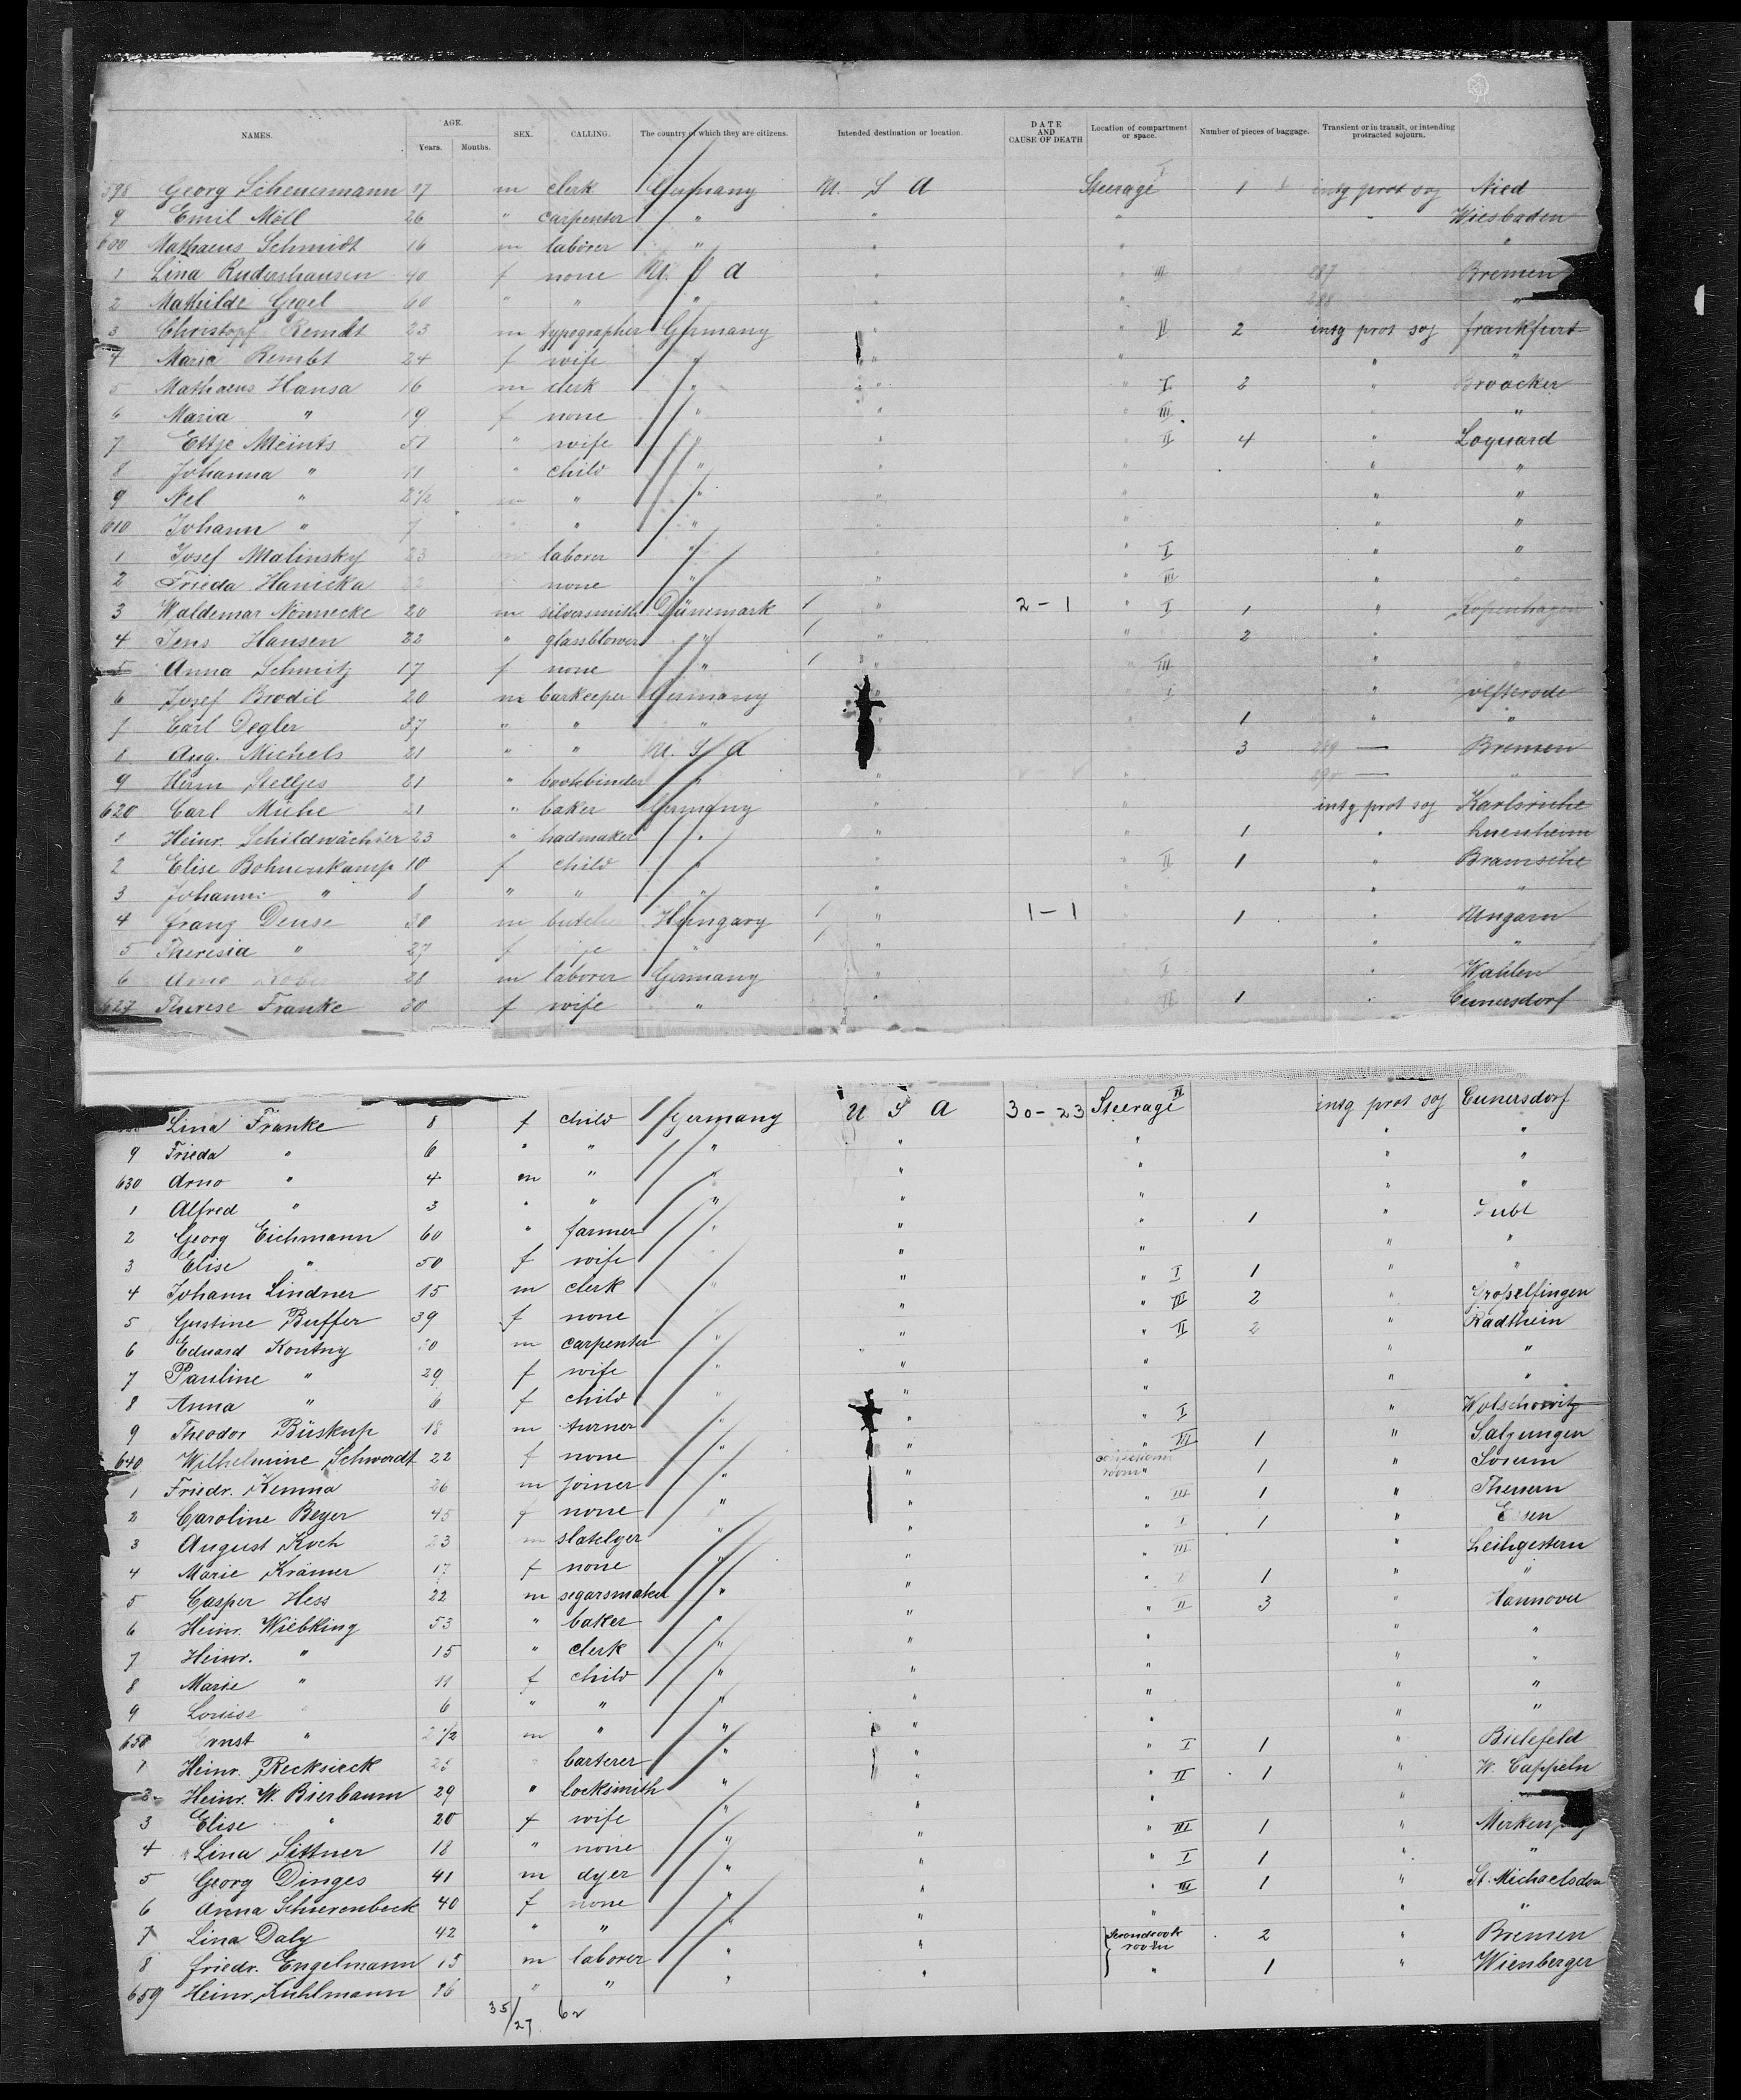 NAMES. AGE. Years. Months. SEX. CALLING. The country of which they are citizens. Intended destination or location. DATE AND CAUSE OF DEATH Location of compartment or space. Number of pieces of baggage. Transient or in transit, or intending protracted sojourn.
598 Georg Scheuermann 17 m clerk Germany U. S A Steerage I 1 intg prot soj Nied
9 Emil Möll 26 " carpenter " " " " Wiesbaden
600 Mathaeus Schmidt 16 m laborer " " " "
1 Lina Rudershausen 40 f none U. S A " " III 287 Bremen
2 Mathilde Gegel 60 " " " " " 288 "
3 Christopf Remdt 23 m typographer Germany " " II 2 intg prot soj Frankfurt
4 Maria Rembt 24 f wife " " " " "
5 Mathaeus Hansa 16 m clerk " " " I 2 " Broacker
6 Maria " 19 f none " " " III " "
7 Ettje Meints 51 " wife " " " II 4 " Loquard
8 Johanna " 11 " child " " " " "
9 Nel " 2 1/2 m " " " " " "
610 Johann " 7 " " " " " "
1 Josef Malinsky 23 laborer " " I " "
2 Frieda Hanicka none " " " III " "
3 Waldemar Nonnecke 20 m silversmith Dänemark 1 " 2-1 " I 1 " Kopenhagen
4 Jens Hansen 22 " glassblower " 1 " " 2 " "
5 Anna Schmitz 17 f none " 1 " " III " "
6 Josef Brodil 20 m barkeeper Germany " I "
7 Carl Degler 37 " " " " " 1 " "
8 Aug. Michels 21 " " U. S A 3 289 — Bremen
9 Herm Stelljes 21 " bookbinder " " " 290 — "
620 Carl Mühe 21 " baker Germany " " intg prot soj Karlsruhe
1 Heinr. Schildwächter 23 " hadmaker " " " 1 "
2 Elise Bohnenkamp 10 f child " " " II 1 " Bramsche
3 Johanne " 8 " " " " " " "
4 Franz Deuse 30 m butcher Hungary 1 " 1-1 1 " Ungarn
5 Theresia " 27 f " 1 " " "
6 Arno 28 m laborer Germany " I " Wahlen
627 Therese Franke 30 f wife " " II 1 " Cunersdorf
Lina Franke 8 f child Germany U S A 30-23 Steerage II intg prot soj Cunersdorf
9 Frieda " 6 " " " " " " "
630 Arno " 4 m " " " " " "
1 Alfred " 3 " " " " " " "
2 Georg Eichmann 60 " farmer " " " 1 "
3 Elise " 50 f wife " " " "
4 Johann Lindner 15 m clerk " " " I 1 " "
5 Gustine Buffer 39 f none " " III 2 " Großelfingen
6 Eduard Kontny 30 m carpenter " " " II 2 "
7 Pauline " 29 f wife " " " " "
8 Anna " 6 f child " " " " "
9 Theodor Büskup 18 m turner " " " I " Wolschowitz
640 Wilhelmine Schwerdt 22 f none " " " III 1 " Salzungen
1 Friedr. Kemna 26 m joiner " " room " 1 " Sosum
2 Caroline Beyer 45 f none " " " III 1 "
3 August Koch 23 m " " " I 1 " Essen
4 Marie Krämer 17 f none " " " III " Leihgestern
5 Casper Hess 22 m segarsmaker " " " I 1 " "
6 Heinr. Wiebking 53 " baker " " " II 3 " Hannover
7 Heinr. " 15 " clerk " " " " "
8 Marie " 11 f child " " " " "
9 Louise " 6 " " " " " " "
650 Ernst " 2 1/2 m " " " " " "
1 Heinr. Recksieck 25 barterer " " " I 1 " Bielefeld
2 Heinr. W. Bierbaum 29 " locksmith " " " II 1 " W. Cappeln
3 Elise " 20 f wife " " " "
4 Lina Sittner 18 " none " " " III 1 "
5 Georg Dinges 41 m dyer " " " I 1 " "
6 Anna Schierenbeck 40 f none " " " III 1 " St. Michaelsdon
7 Lina Daly 42 " " " " " " "
8 Friedr. Engelmann 15 m laborer " " Secondcook room 2 " Bremen
659 Heinr. Kuhlmann 16 " " " " " 1 " Wienberger
35/27 62